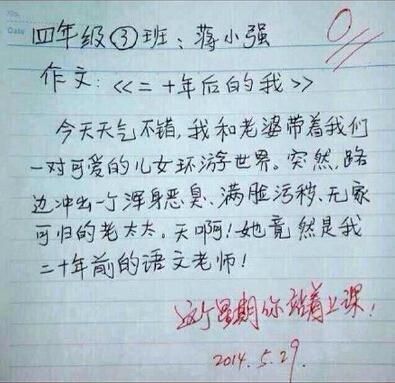 四年级③班：蒋小强
0
Date
作文：《二十年后的我》
今天天气不错，我和老婆带着我们
一对可爱的儿女环游世界。突然，路
边冲出一个浑身恶臭、满脸污秽、无家
可归的老太太。天啊！她竟然是我
二十年前的语文老师！
这个星期你站着上课！
2014.5.29.